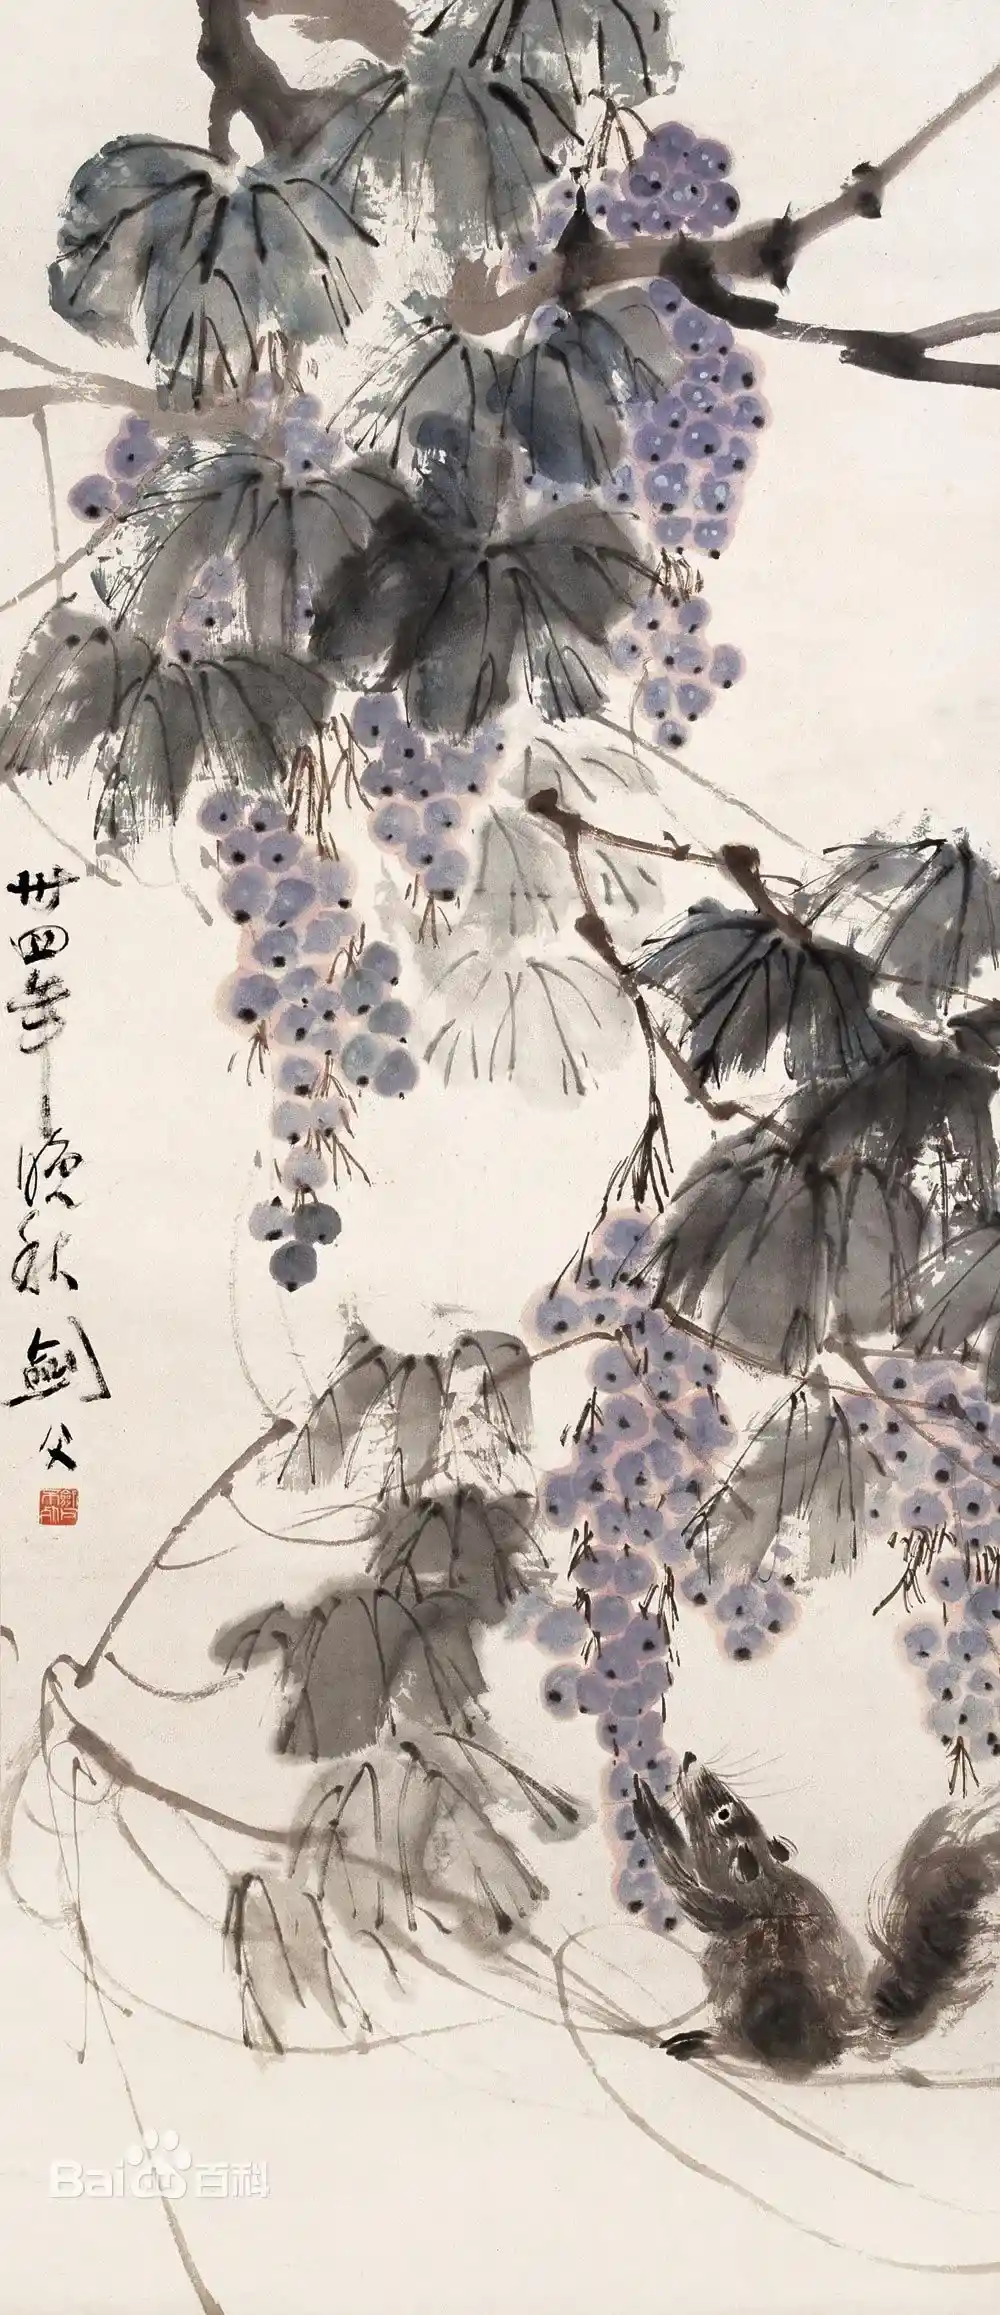 卅四年晚秋劍父
Baidu百科